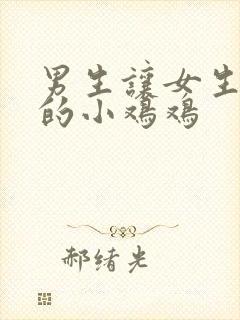 男生讓女生
的小鸡鸡
郝绪光